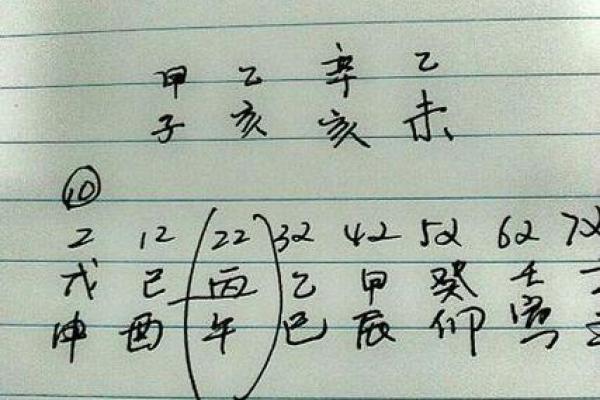 甲 乙 辛 乙
子 亥 亥 未
⑩
2 12 (22) 32 42 52 62 72
戊 己 丙 乙 甲 癸 壬
申 酉 午 巳 辰 卯 寅